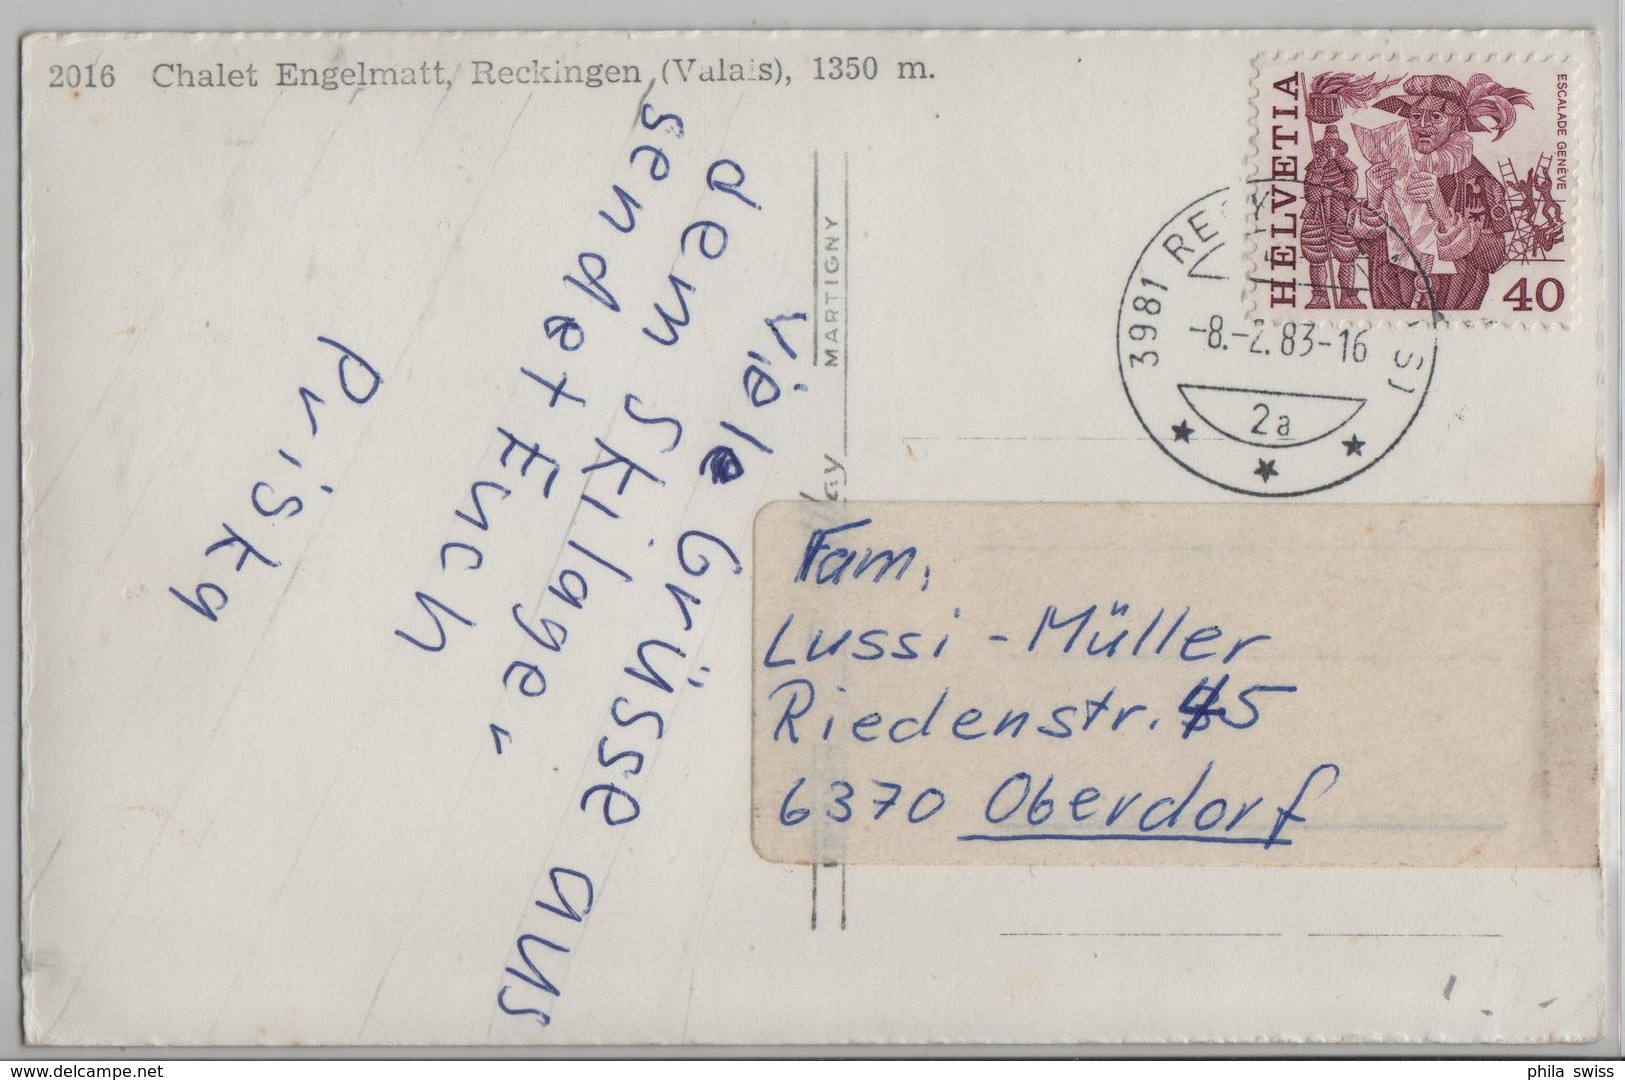 2016 Chalet Engelmatt, Reckingen (Valais), 1350 m.
Viele Grüsse aus
dem Skilager
sendet Euch
Prisky
MARTIGNY
HELVETIA
ESCALADE GENÈVE
40
3981 RE
-8.-2.83-16
2a
Fam.
Lussi-Müller
Riedenstr. 45
6370 Oberdorf
www.delcampe.net
phila_swiss